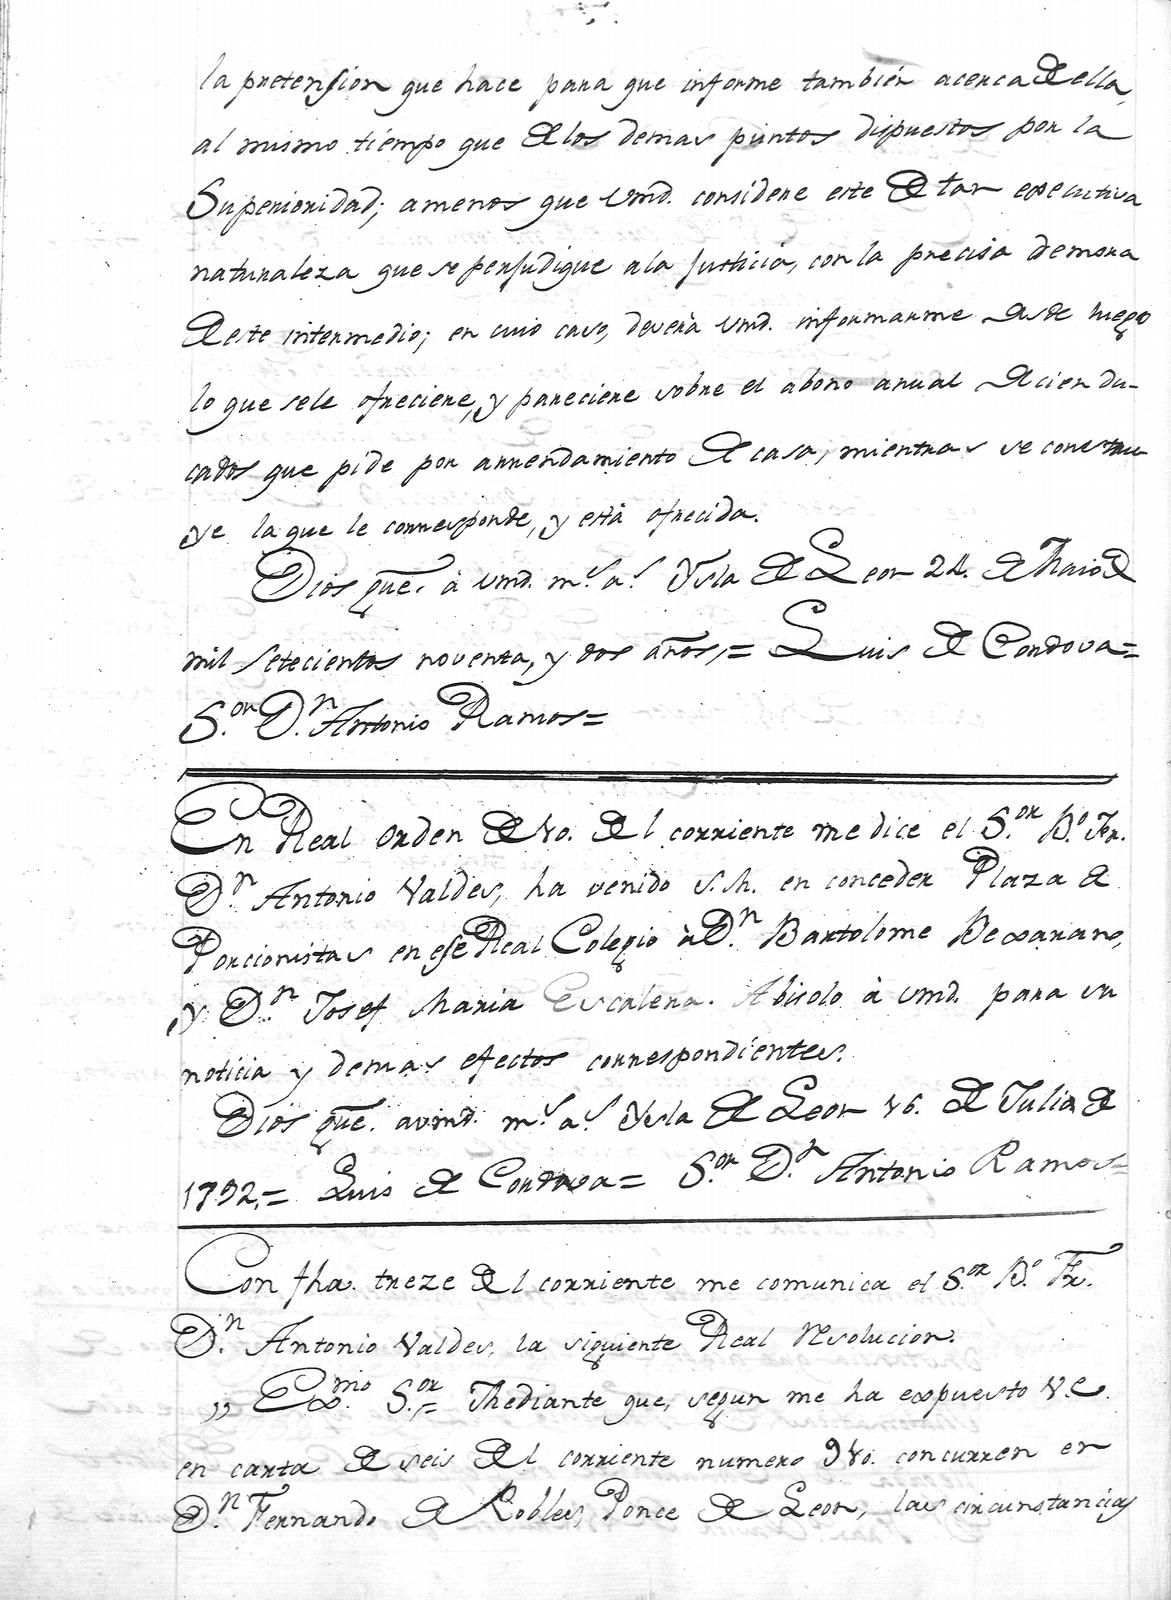 la pretension que hace para que informe tambien acerca de ella,
al mismo tiempo que de los demas puntos dispuestos por la
Superioridad; amenos que vmd. considere este de tan executiva
naturaleza que se perjudique ala justicia, con la precisa demora
de este intermedio; en cuio caso, deverà vmd. informarme desde luego
lo que sele ofreciere, y pareciere sobre el abono anual de cien du-
cados que pide por arrendamiento de casa, mientras se constru
ye la que le corresponde, y està ofrecida.
Dios gue. à vmd. m.s a.s Ysla de Leon 24. de Maio de
mil setecientos noventa, y dos años,= Luis de Cordova=
S.or D.n Antonio Ramos=
En Real orden de 10. del corriente me dice el S.or B.o Fr.
D.n Antonio Valdes, ha venido S.M. en conceder Plaza de
Porcionistas en ese Real Colegio à D.n Bartolome Bexarano,
y D.n Josef Maria Escalera. Abisolo à vmd. para su
noticia y demas efectos correspondientes.
Dios gue. avmd. m.s a.s Ysla de Leon 16. de Julio de
1792,= Luis de Cordova= S.or D.n Antonio Ramos=
Con fha. treze del corriente me comunica el S.or B.o Fr.
D.n Antonio Valdes, la siguiente Real Resolucion.
,, Exmo. S.or,= Mediante que, segun me ha expuesto V.E.
en carta de seis del corriente numero 910. concurren en
D.n Fernando de Robles, Ponce de Leon, las circunstancias